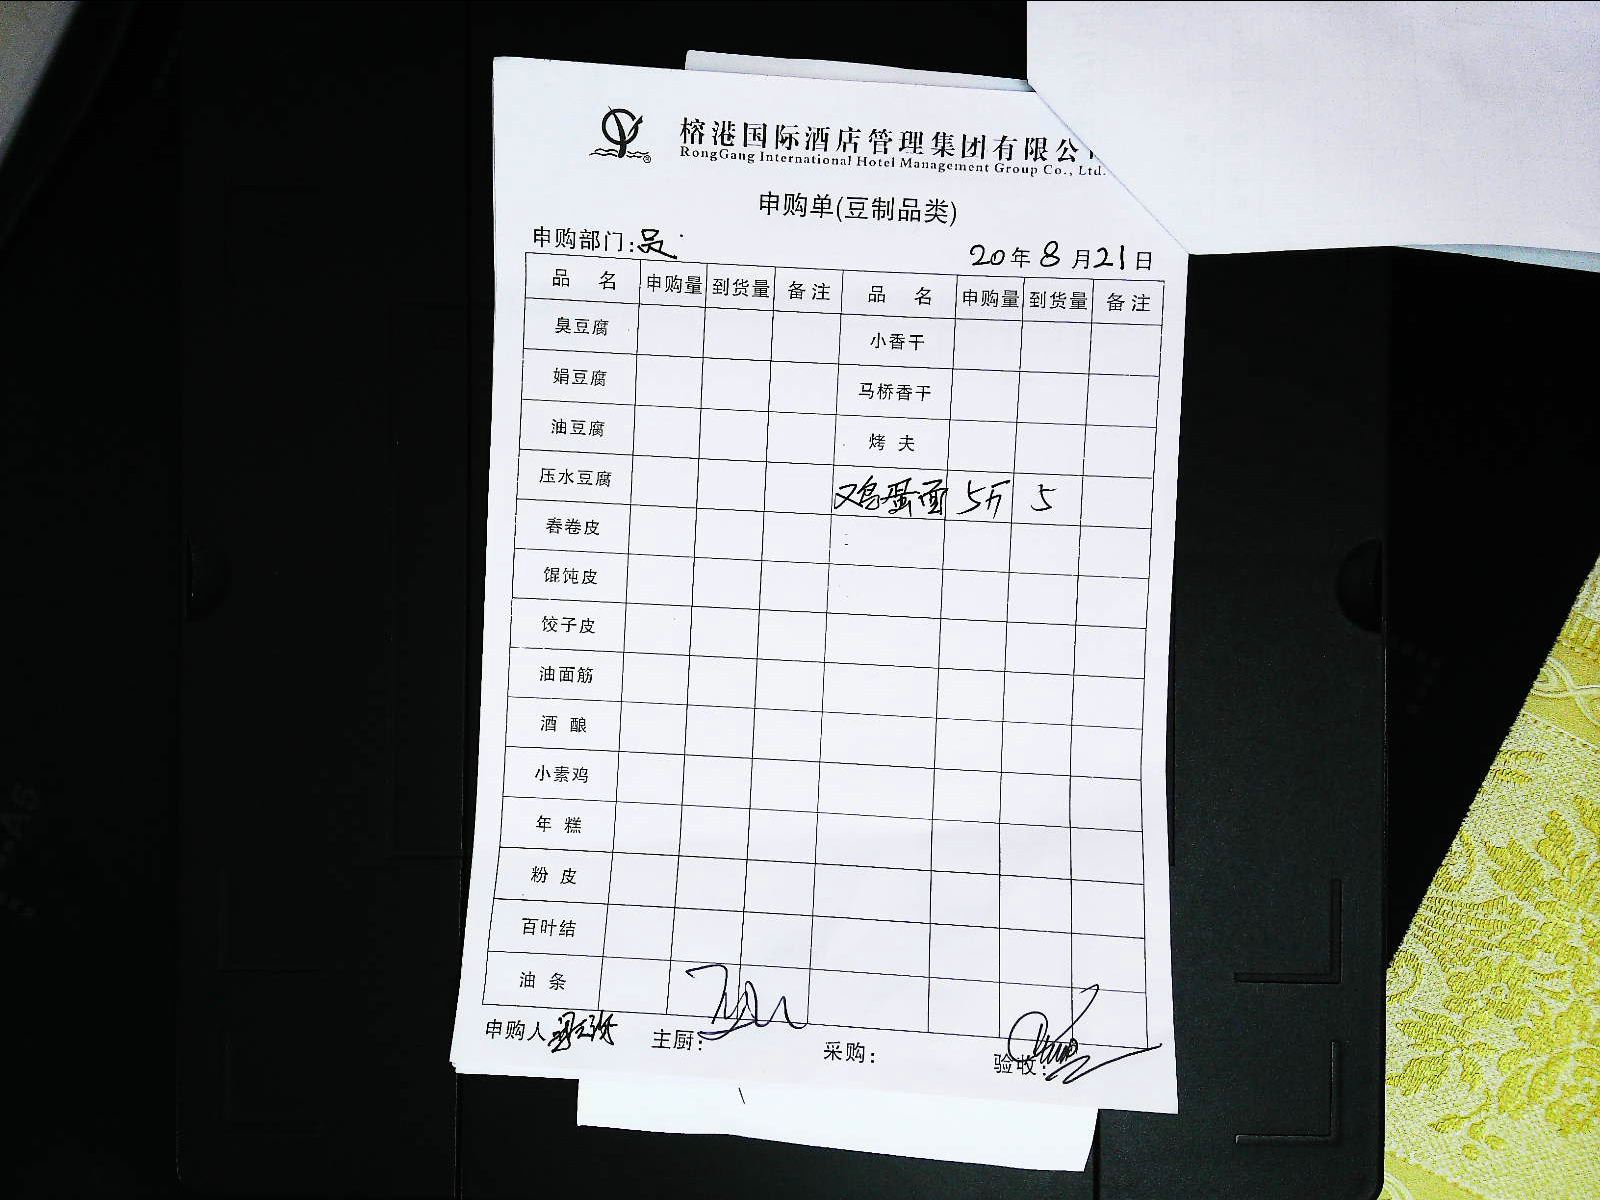 榕港国际酒店管理集团有限公
RongGang International Hotel Management Group Co., Ltd.
申购单(豆制品类)
申购部门: 20年8月21日
品名 申购量 到货量 备注 品名 申购量 到货量 备注
臭豆腐 小香干
娟豆腐 马桥香干
油豆腐 烤夫
压水豆腐 鸡蛋面 5斤 5
春卷皮
馄饨皮
饺子皮
油面筋
酒酿
小素鸡
年糕
粉皮
百叶结
油条
申购人 主厨: 采购: 验收: